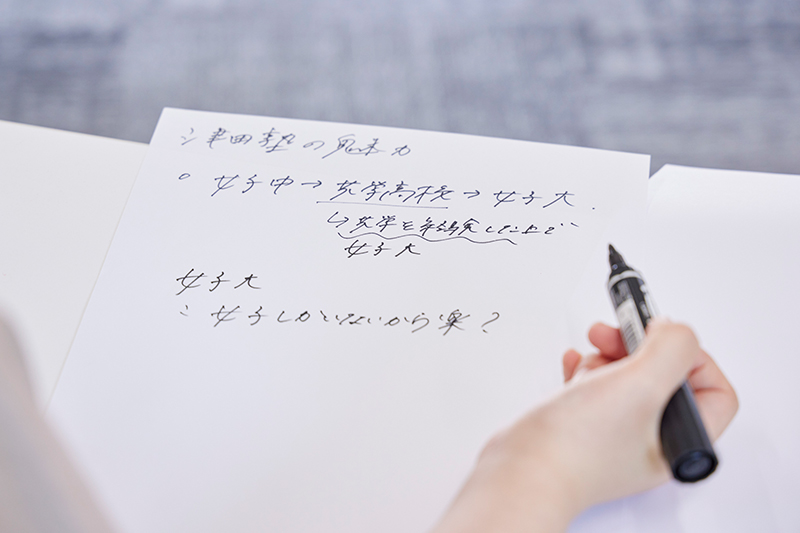 津田塾の魅力
○ 女子中→共学高校→女子大.
↳共学を経験した上で…
女子大
女子大
: 女子しかいないから楽?